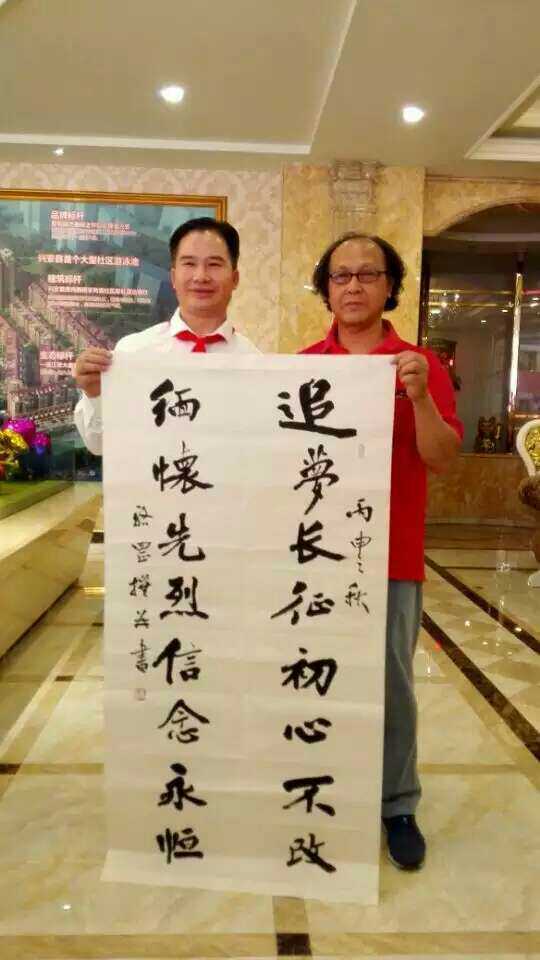 追夢长征初心不改
丙申之秋
缅懷先烈信念永恒
撰并書
品牌标杆
兴安县首个大型社区游泳池
建筑标杆
生态标杆